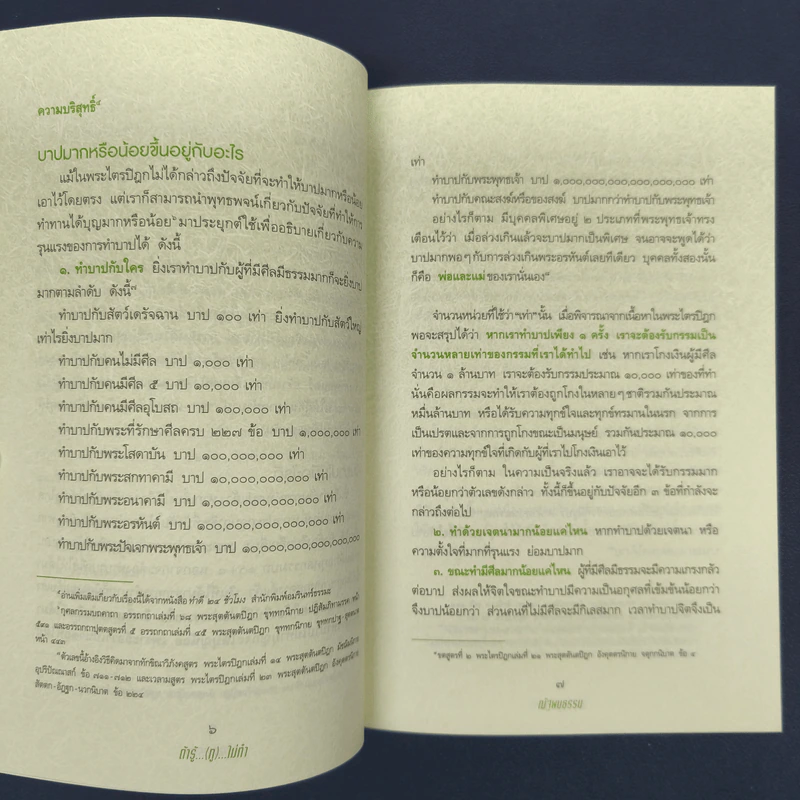 ความบริสุทธิ์๔
บาปมากหรือน้อยขึ้นอยู่กับอะไร
แม้ในพระไตรปิฎกไม่ได้กล่าวถึงปัจจัยที่จะทำให้บาปมากหรือน้อย
เอาไว้โดยตรง แต่เราก็สามารถนำพุทธพจน์เกี่ยวกับปัจจัยที่ทำให้การ
ทำทานได้บุญมากหรือน้อย มาประยุกต์ใช้เพื่ออธิบายเกี่ยวกับความ
รุนแรงของการทำบาปได้ ดังนี้
๑. ทำบาปกับใคร ยิ่งเราทำบาปกับผู้ที่มีศีลมีธรรมมากก็จะยิ่งบาป
มากตามลำดับ ดังนี้
ทำบาปกับสัตว์เดรัจฉาน บาป ๑๐๐ เท่า ยิ่งทำบาปกับสัตว์ใหญ่
เท่าไรยิ่งบาปมาก
ทำบาปกับคนไม่มีศีล บาป ๑,๐๐๐ เท่า
ทำบาปกับคนมีศีล ๕ บาป ๑๐,๐๐๐ เท่า
ทำบาปกับคนมีศีลอุโบสถ บาป ๑๐๐,๐๐๐ เท่า
ทำบาปกับพระที่รักษาศีลครบ ๒๒๗ ข้อ บาป ๑,๐๐๐,๐๐๐ เท่า
ทำบาปกับพระโสดาบัน บาป ๑๐๐,๐๐๐,๐๐๐ เท่า
ทำบาปกับพระสกทาคามี บาป ๑๐,๐๐๐,๐๐๐,๐๐๐ เท่า
ทำบาปกับพระอนาคามี บาป ๑,๐๐๐,๐๐๐,๐๐๐,๐๐๐ เท่า
ทำบาปกับพระอรหันต์ บาป ๑๐๐,๐๐๐,๐๐๐,๐๐๐,๐๐๐ เท่า
ทำบาปกับพระปัจเจกพระพุทธเจ้า บาป ๑๐,๐๐๐,๐๐๐,๐๐๐,๐๐๐,๐๐๐
อ่านเพิ่มเติมเกี่ยวกับเรื่องนี้ได้จากหนังสือ ทำดี ๒๔ ชั่วโมง สำนักพิมพ์อมรินทร์ธรรมะ
กุศลกรรมบถคาถา อรรถกถาเล่มที่ ๖๘ พระสุตตันตปิฎก ขุททกนิกาย ปฏิสัมภิทามรรค หน้า
๕๙๑ และอรรถกถาปุตตสูตรที่ ๕ อรรถกถาเล่มที่ ๔๕ พระสุตตันตปิฎก ขุททกนิกาย
หน้า ๔๔๓
ตัวเลขนี้อ้างอิงวิธีคิดมาจากทักขิณาวิภังคสูตร พระไตรปิฎกเล่มที่ ๑๔ พระสุตตันตปิฎก มัชฌิมนิกาย
อุปริปัณณาสก์ ข้อ ๗๑๑-๗๑๒ และเวลามสูตร พระไตรปิฎกเล่มที่ ๒๓ พระสุตตันตปิฎก อังคุตตรนิกาย
สัตตก-อัฏฐก-นวกนิบาต ข้อ ๒๒๔
๖
ถ้ารู้...(กู)...ไม่ทำ
เท่า
ทำบาปกับพระพุทธเจ้า บาป ๑,๐๐๐,๐๐๐,๐๐๐,๐๐๐,๐๐๐,๐๐๐ เท่า
ทำบาปกับคณะสงฆ์หรือของสงฆ์ บาปมากกว่าทำบาปกับพระพุทธเจ้า
อย่างไรก็ตาม มีบุคคลพิเศษอยู่ ๒ ประเภทที่พระพุทธเจ้าทรง
เตือนไว้ว่า เมื่อล่วงเกินแล้วจะบาปมากเป็นพิเศษ จนอาจจะพูดได้ว่า
บาปมากพอๆ กับการล่วงเกินพระอรหันต์เลยทีเดียว บุคคลทั้งสองนั้น
ก็คือ พ่อและแม่ของเรานั่นเอง๘
จำนวนหน่วยที่ใช้ว่า "เท่า" นั้น เมื่อพิจารณาจากเนื้อหาในพระไตรปิฎก
พอจะสรุปได้ว่า หากเราทำบาปเพียง ๑ ครั้ง เราจะต้องรับกรรมเป็น
จำนวนหลายเท่าของกรรมที่เราได้ทำไป เช่น หากเราโกงเงินผู้มีศีล
จำนวน ๑ ล้านบาท เราจะต้องรับกรรมประมาณ ๑๐,๐๐๐ เท่าของที่ทำ
นั่นคือผลกรรมจะทำให้เราต้องถูกโกงในหลายๆ ชาติรวมกันประมาณ
หมื่นล้านบาท หรือได้รับความทุกข์ใจและทุกข์ทรมานในนรก จากการ
เป็นเปรตและจากการถูกโกงขณะเป็นมนุษย์ รวมกันประมาณ ๑๐,๐๐๐
เท่าของความทุกข์ใจที่เกิดกับผู้ที่เราไปโกงเงินเอาไว้
อย่างไรก็ตาม ในความเป็นจริงแล้ว เราอาจจะได้รับกรรมมาก
หรือน้อยกว่าตัวเลขดังกล่าว ทั้งนี้ก็ขึ้นอยู่กับปัจจัยอีก ๓ ข้อที่กำลังจะ
กล่าวถึงต่อไป
๒. ทำด้วยเจตนามากน้อยแค่ไหน หากทำบาปด้วยเจตนา หรือ
ความตั้งใจที่มากที่รุนแรง ย่อมบาปมาก
๓. ขณะทำมีศีลมากน้อยแค่ไหน ผู้ที่มีศีลมีธรรมจะมีความเกรงกลัว
ต่อบาป ส่งผลให้จิตใจขณะทำบาปมีความเป็นอกุศลที่เข้มข้นน้อยกว่า
จึงบาปน้อยกว่า ส่วนคนที่ไม่มีศีลจะมีกิเลสมาก เวลาทำบาปจิตจึงเป็น
ขตสูตรที่ ๒ พระไตรปิฎกเล่มที่ ๒๑ พระสุตตันตปิฎก อังคุตตรนิกาย จตุกกนิบาต ข้อ ๔
๗